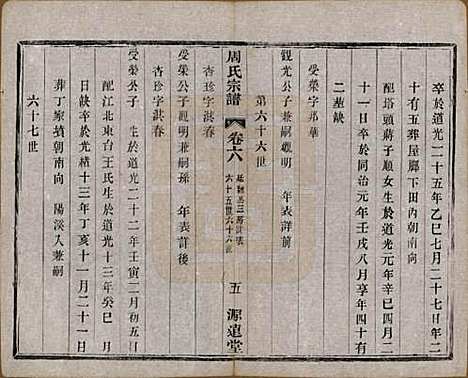 卒於道光二十五年乙巳七月二十七日年二
十有五葬屋廊下田內朝南向
配塔頭蔣子順女生於道光元年辛巳四月二
十一日卒於同治元年壬戌八月享年四十有
二塟缺
受榮字邦華
觀光公子兼嗣觀明 年表詳前
第六十六世
周氏宗譜
卷六
六十五世六十六世
五 源遠堂
杏珍字淇春
受榮公子觀明兼嗣孫 年表詳後
杏珍字淇春
受榮公子 生於道光二十二年壬寅二月初五日
配江北東台王氏生於道光十三年癸巳 月
日缺卒於光緒十三年丁亥十一月二十一日
葬丁家墳朝南向 陽溪入兼嗣
六十七世